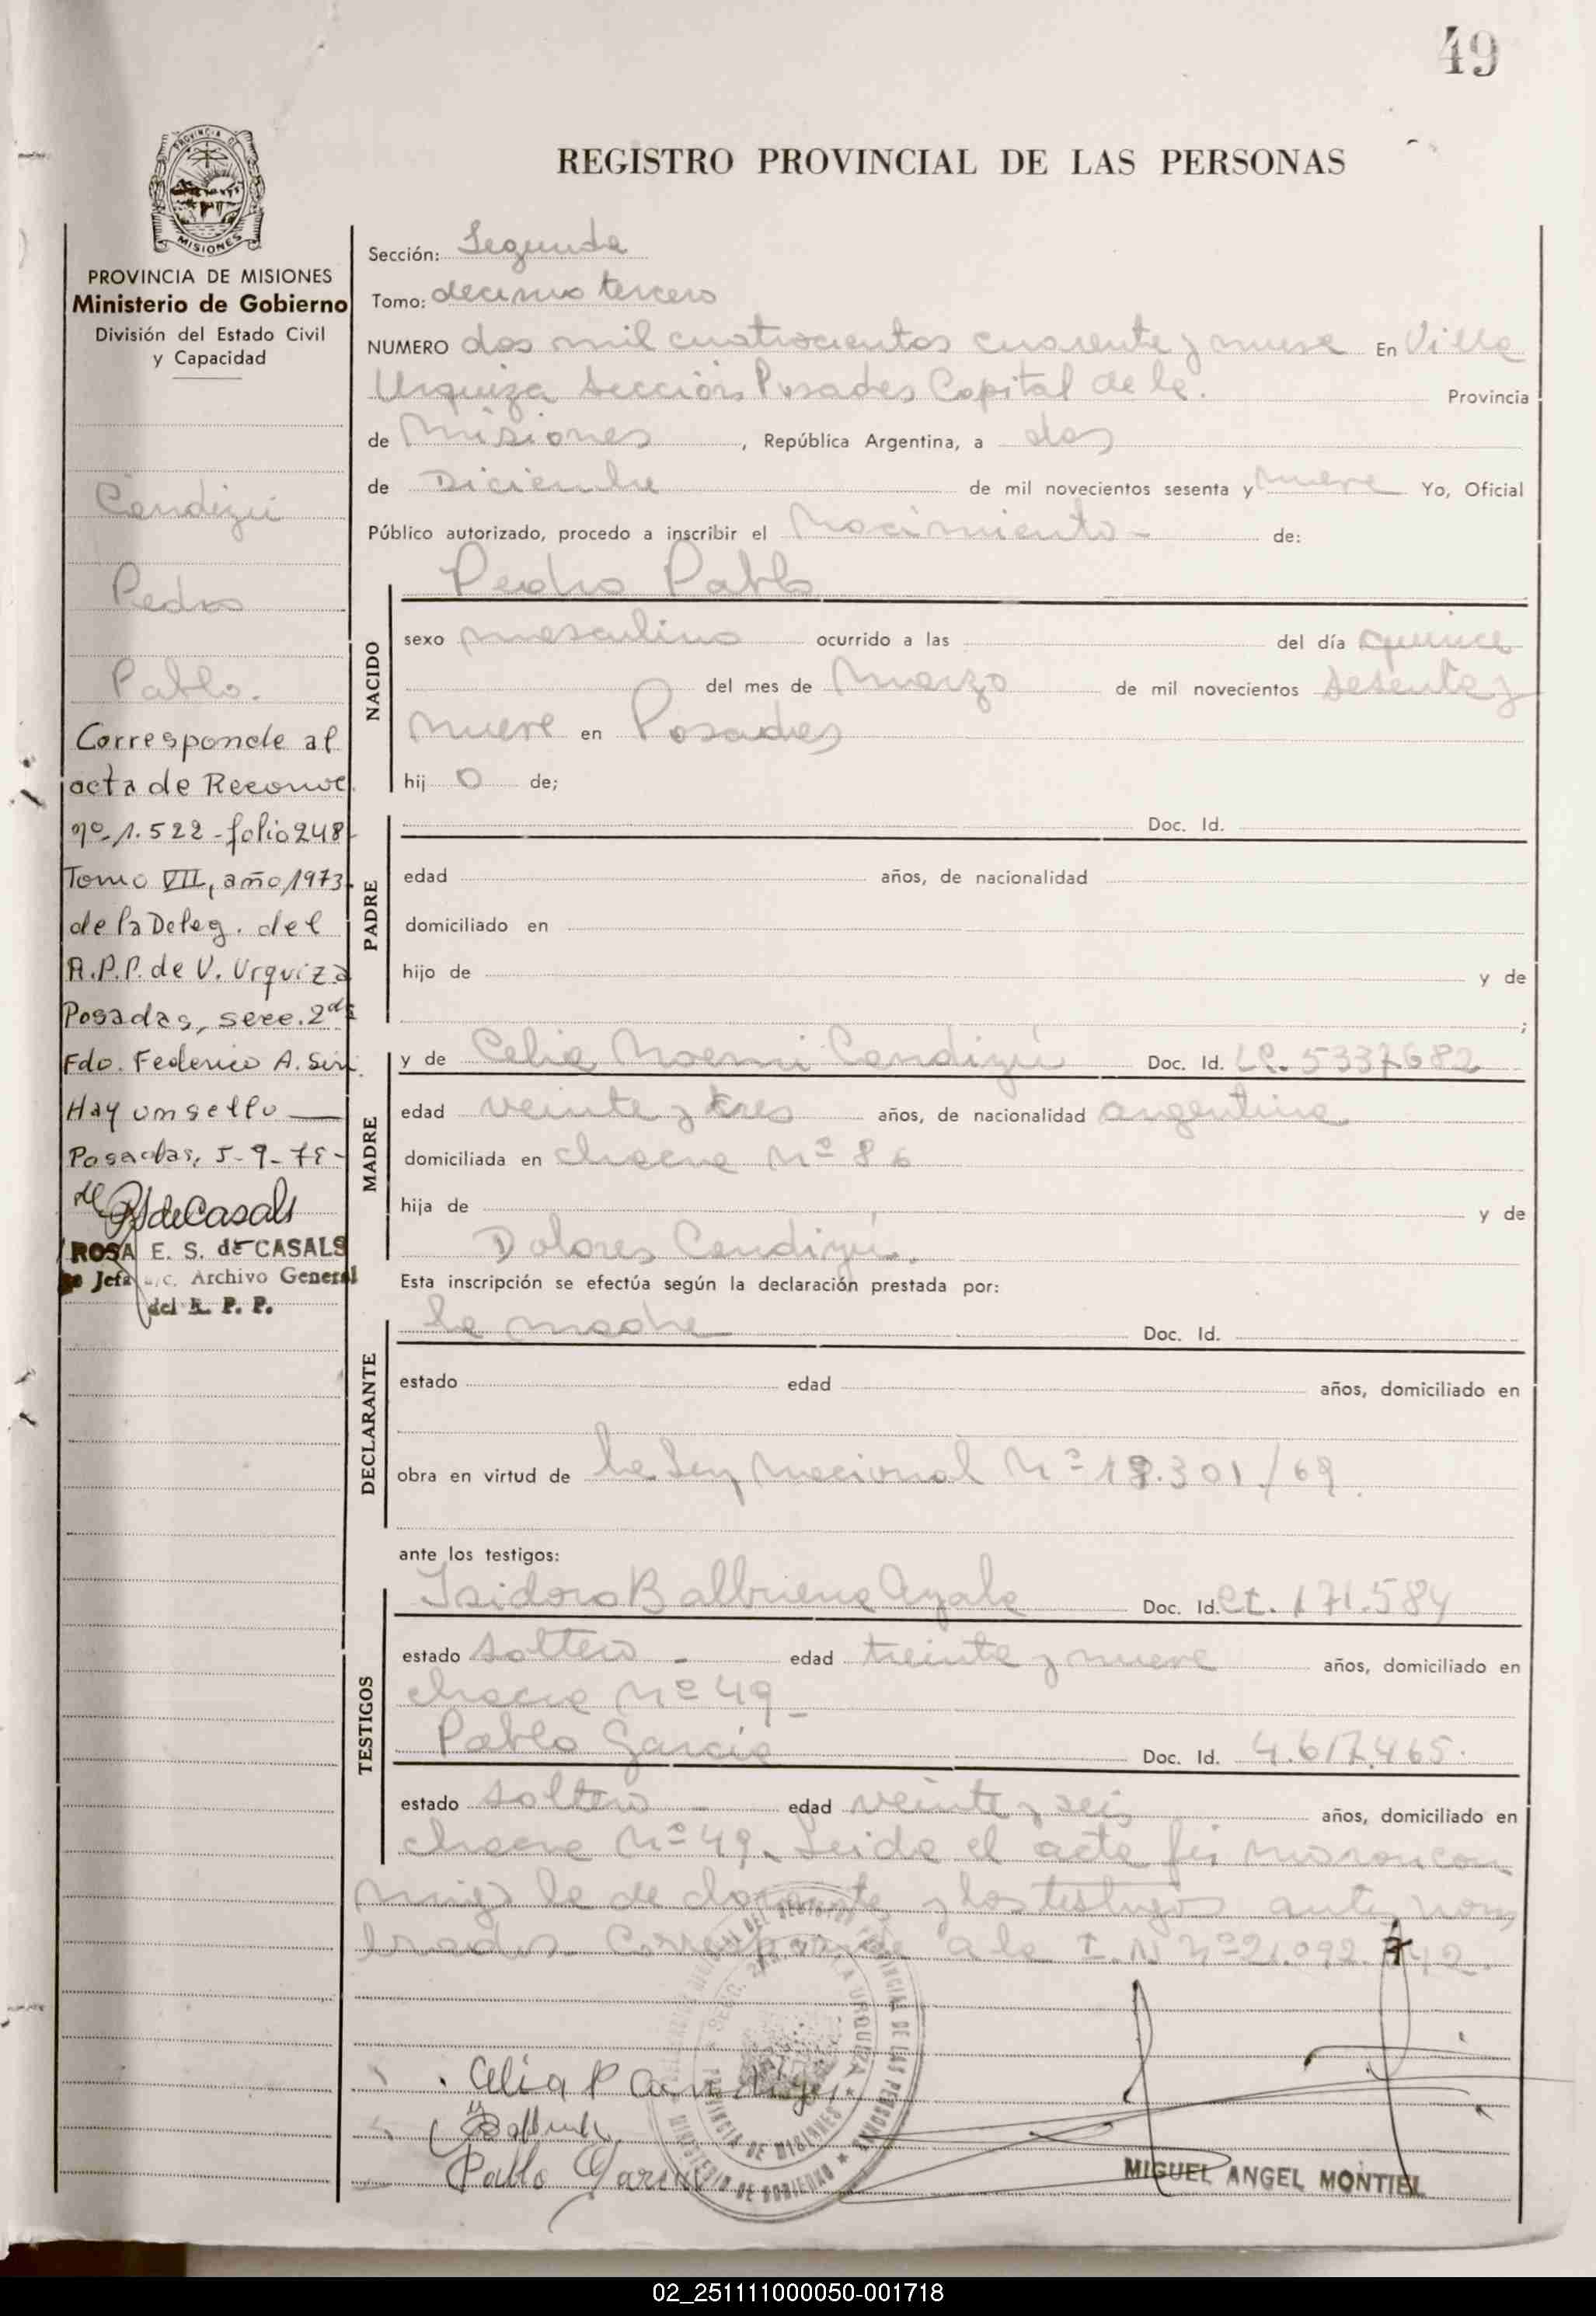 49
REGISTRO PROVINCIAL DE LAS PERSONAS
PROVINCIA DE MISIONES
Ministerio de Gobierno
División del Estado Civil
y Capacidad
Candizú
Pedro
Pablo.
Corresponde al
acta de Reconoc
nº 1.522 - folio 248
Tomo VII, año 1973
de la Deleg. del
R.P.P. de V. Urquiza
Posadas, secc. 2da
Fdo. Federico A.
Hay un sello
Posadas, 5-9-75-
deCasals
ROSA E. S. de CASALS
Jefa a/c. Archivo General
del R. P. P.
Sección: Segunda
Tomo: decimo tercero
NUMERO dos mil cuatrocientos cuarenta y nueve En Villa
Urquiza Sección Posadas Capital de la. Provincia
de Misiones, República Argentina, a dos
de Diciembre de mil novecientos sesenta y nueve Yo, Oficial
Público autorizado, procedo a inscribir el Nacimiento - de:
Pedro Pablo
NACIDO
sexo masculino ocurrido a las del día quince
del mes de Marzo de mil novecientos sesenta y
nueve en Posadas
hij o de;
PADRE
Doc. Id.
edad años, de nacionalidad
domiciliado en
hijo de y de
;
MADRE
y de Celia Noemi Candizú Doc. Id. LC. 5337682
edad veinte y tres años, de nacionalidad argentina
domiciliada en chacra Nº 86
hija de y de
Dolores Candizú.
Esta inscripción se efectúa según la declaración prestada por:
DECLARANTE
la madre Doc. Id.
estado edad años, domiciliado en
obra en virtud de la Ley Nacional Nº 18.301/69.
ante los testigos:
TESTIGOS
Isidoro Balbuena Ayala Doc. Id. CI. 171.584
estado soltero - edad treinta y nueve años, domiciliado en
chacra Nº 49 -
Pablo Garcia Doc. Id. 4.617.465.
estado soltero - edad veinte y seis años, domiciliado en
chacra Nº 49. Leida el acta firmaron con
migo la declarante y los testigos antes nom
brados. Corresponde a la I.N Nº 21.092.742.
Celia N Candizu
Balbuena
Pablo Garcia
MIGUEL ANGEL MONTIEL
02_251111000050-001718